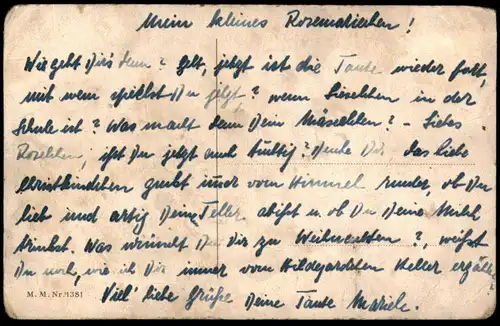 Mein kleines Rosemariechen!
Wie geht Dir's denn? Gelt, jetzt ist die Tante wieder fort,
mit wem spielst Du jetzt? wenn Lieschen in der
Schule ist? Was macht denn Dein Mäselchen? - Liebes
Roselchen, ißt Du jetzt auch tüchtig? Denke Dir, das liebe
Christkindchen guckt immer vom Himmel runder, ob Du
lieb und artig Deine Teller abißt u. ob Du Deine Milch
trinkst. Was wünscht Du Dir zu Weihnachten?, weißt
Du noch, wie ich Dir immer vom Hildegardchen Keller erzählt
M. M. Nr. 1381
Viel' liebe Grüße Deine Tante Mariele.